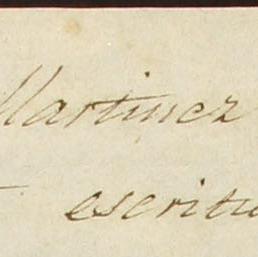 Martinez
escritu